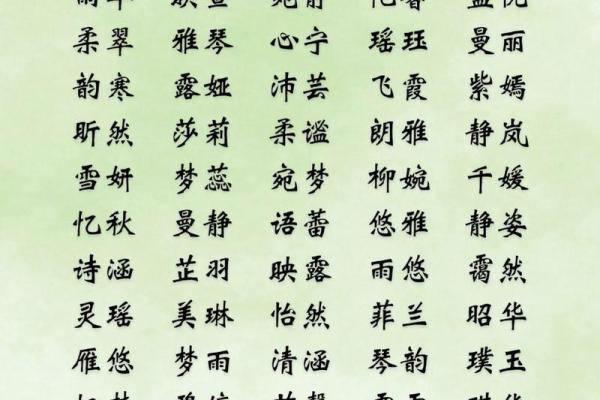 柔翠 雅琴 心宁 瑶珏 曼丽
韵寒 露娅 沛芸 飞霞 紫嫣
昕然 莎莉 柔谧 朗雅 静岚
雪妍 梦蕊 宛梦 柳婉 千媛
忆秋 曼静 语蕾 悠雅 静姿
诗涵 芷羽 映露 雨悠 霭然
灵瑶 美琳 怡然 菲兰 昭华
雁悠 梦雨 清涵 琴韵 璞玉